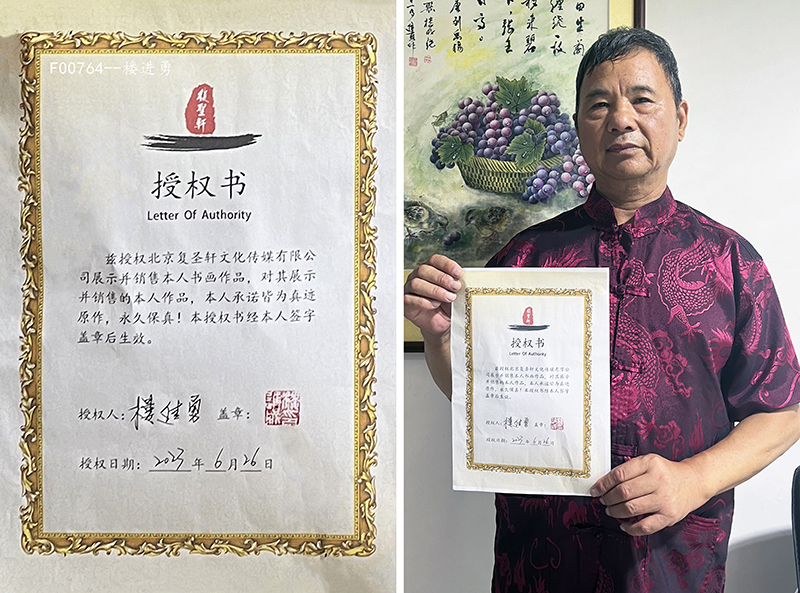 F00764--楼进勇
復聖軒
授权书
Letter Of Authority
兹授权北京复圣轩文化传媒有限公
司展示并销售本人书画作品，对其展示
并销售的本人作品，本人承诺皆为真迹
原作，永久保真！本授权书经本人签字
盖章后生效。
授权人：楼进勇 盖章：
授权日期：2023年6月26日
授权书
Letter Of Authority
兹授权北京复圣轩文化传媒有限公
司展示并销售本人书画作品，对其展示
并销售的本人作品，本人承诺皆为真迹
原作，永久保真！本授权书经本人签字
盖章后生效。
授权人：楼进勇 盖章：
授权日期：2023年6月26日